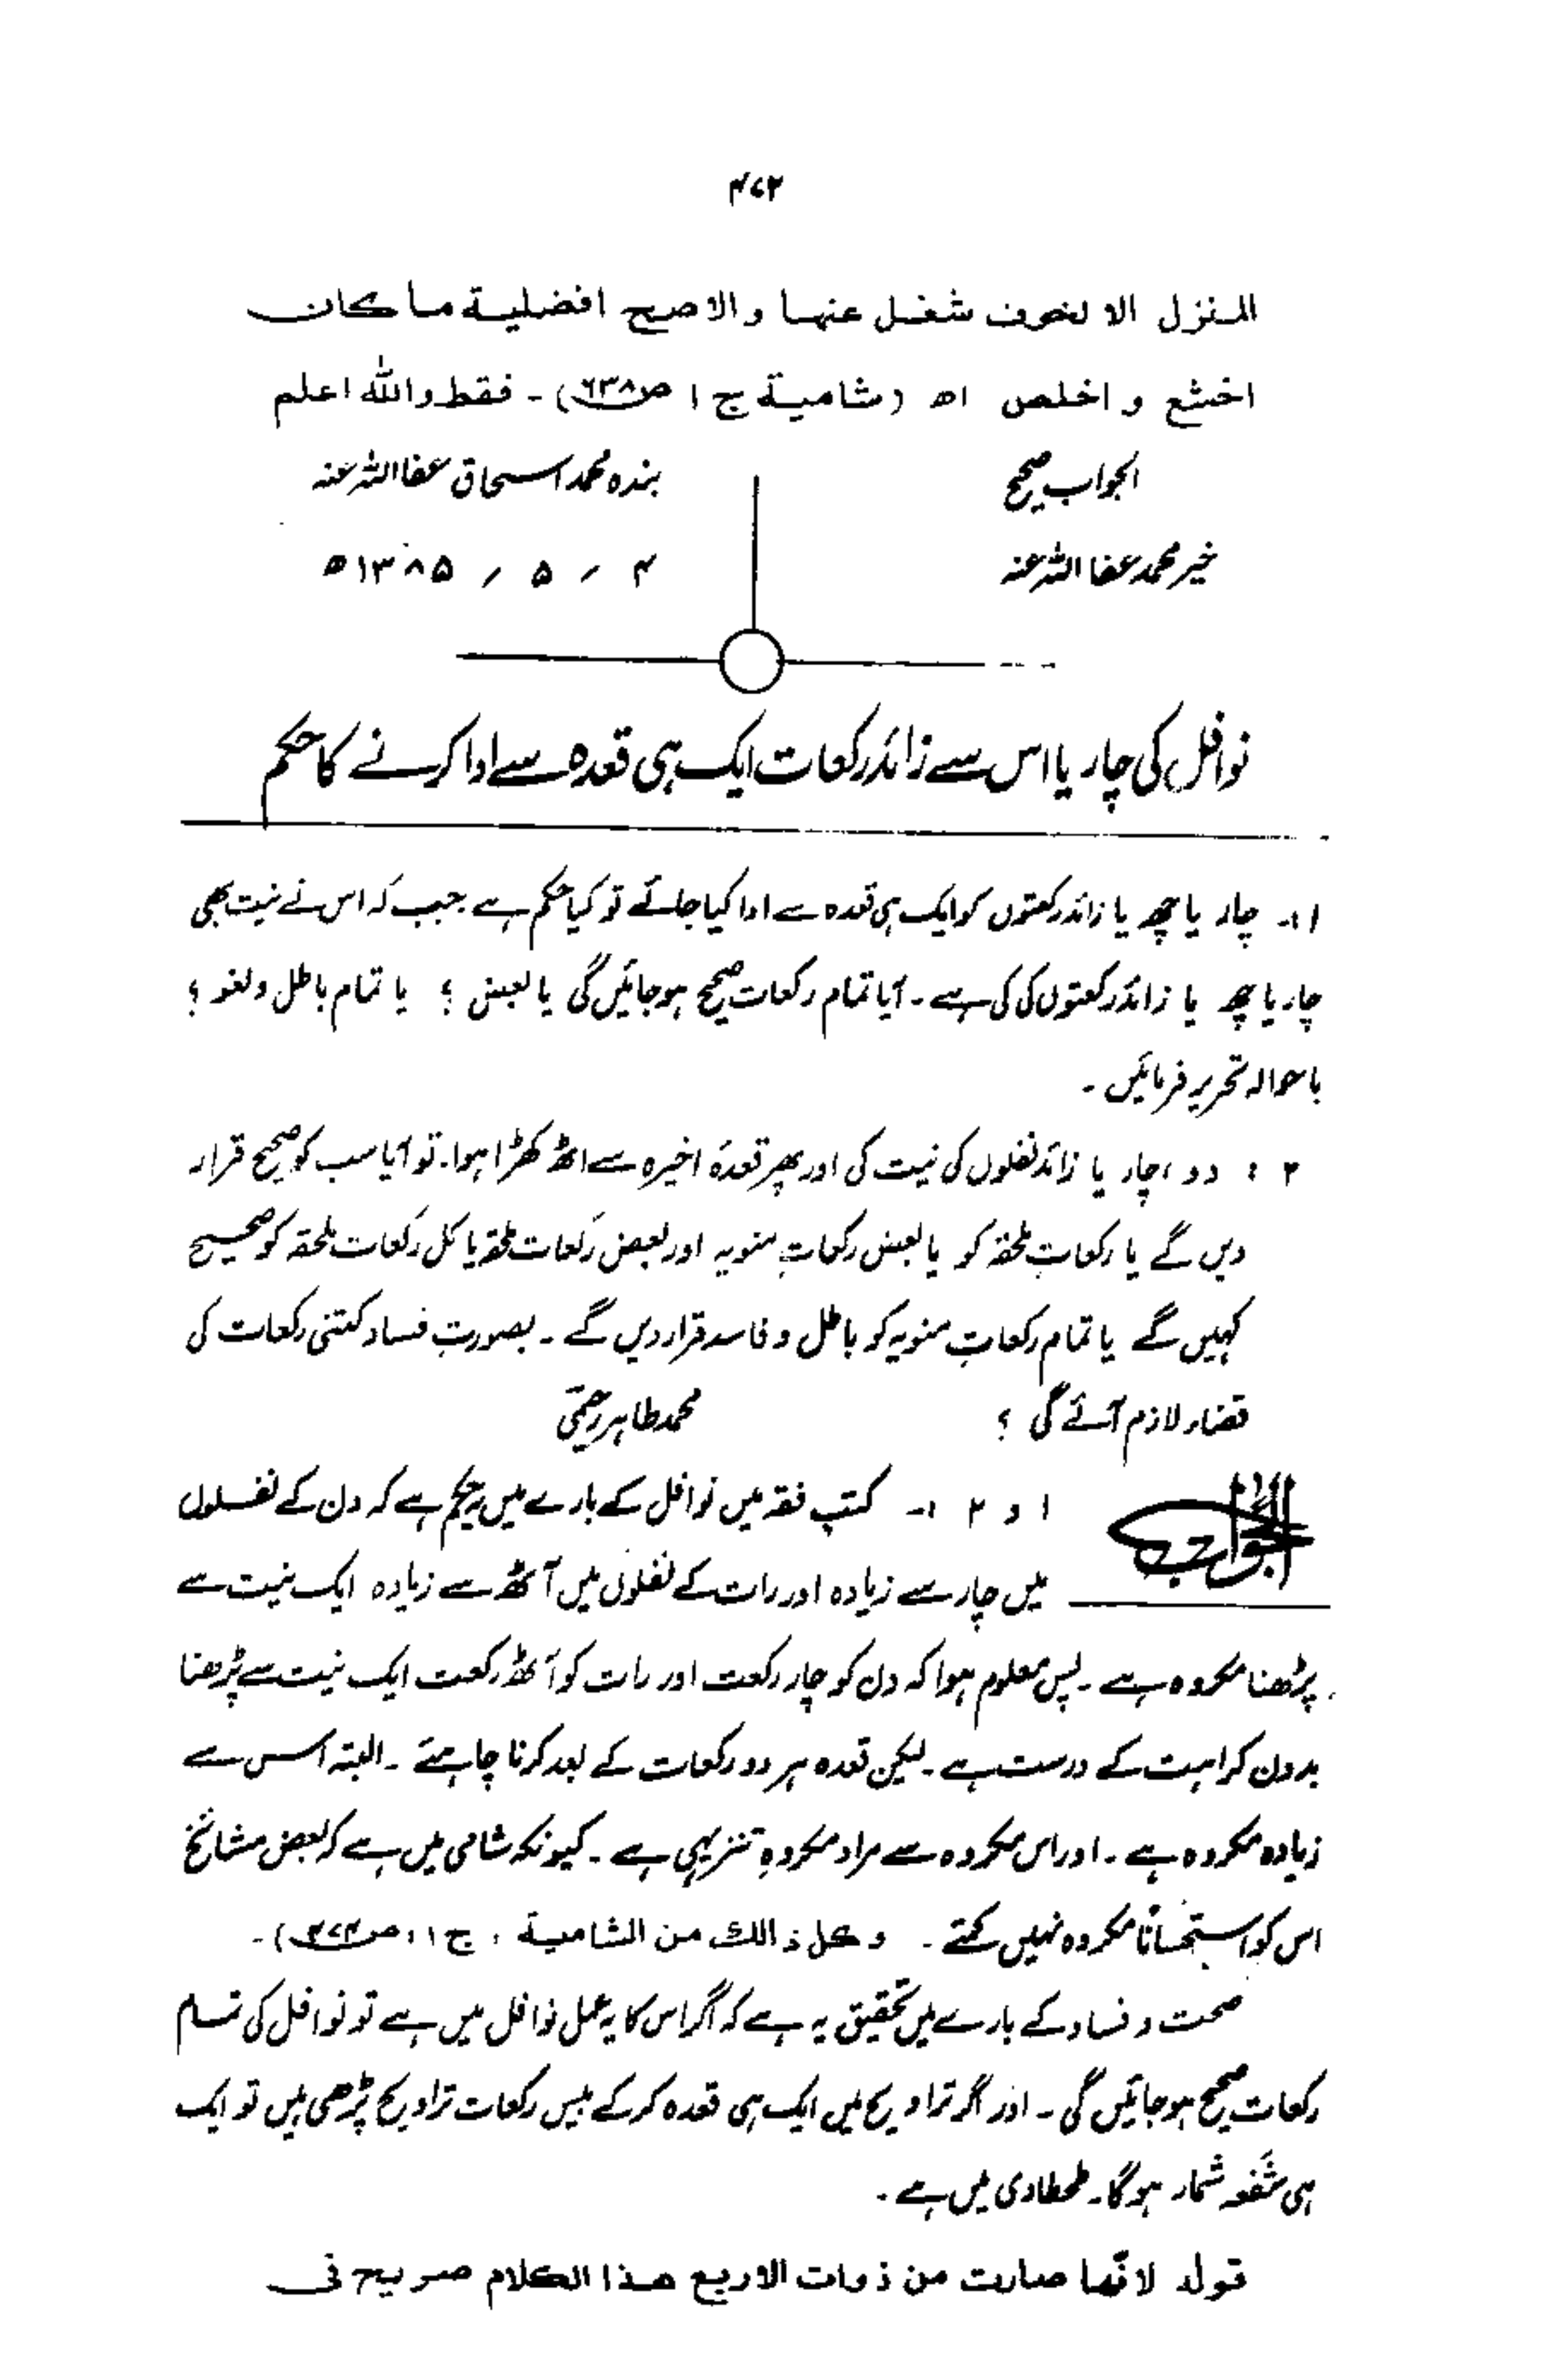 ۴۷۲
المنزل الا لخوف شغل عنها والاصح افضلية ما كان
اخشع و اخلص اھ (شامية ج ۱ ص۶۳۸)۔ فقط واللّٰه اعلم
الجواب صحیح
بندہ محمد اسحاق عفا اللہ عنہ
خیر محمد عفا اللہ عنہ
۴ / ۵ / ۱۳۸۵ھ
نوافل کی چار یا اس سے زائد رکعات ایک ہی قعدہ سے ادا کرنے کا حکم
۱:۔ چار یا چھ یا زائد رکعتوں کو ایک ہی قعدہ سے ادا کیا جائے تو کیا حکم ہے جب کہ اس نے نیت بھی
چار یا چھ یا زائد رکعتوں کی کی ہے۔ آیا تمام رکعات صحیح ہو جائیں گی یا بعض ؟ یا تمام باطل و لغو ؟
با حوالہ تحریر فرمائیں۔
۲ : دو ، چار یا زائد نفلوں کی نیت کی اور پھر قعدۂ اخیرہ سے اٹھ کھڑا ہوا۔ تو آیا سب کو صحیح قرار
دیں گے یا رکعاتِ ملحقہ کو یا بعض رکعاتِ منویہ اور بعض رکعات ملحقہ یا کل رکعات ملحقہ کو صحیح
کہیں گے یا تمام رکعاتِ منویہ کو باطل و فاسد قرار دیں گے۔ بصورتِ فساد کتنی رکعات کی
قضاء لازم آئے گی ؟ محمد طاہر رحیمی
الجواب
۱ و ۲ :۔ کتبِ فقہ میں نوافل کے بارے میں یہ حکم ہے کہ دن کے نفسلوں
میں چار سے زیادہ اور رات کے نفلوں میں آٹھ سے زیادہ ایک نیت سے
پڑھنا مکروہ ہے۔ پس معلوم ہوا کہ دن کو چار رکعت اور رات کو آٹھ رکعت ایک نیت سے پڑھنا
بدون کراہت کے درست ہے۔ لیکن قعدہ ہر دو رکعات کے بعد کرنا چاہئے۔ البتہ اس سے
زیادہ مکروہ ہے۔ اور اس مکروہ سے مراد مکروہِ تنزیہی ہے۔ کیونکہ شامی میں ہے کہ بعض مشائخ
اس کو استحسانًا مکروہ نہیں کہتے۔ وكل ذالك من الشامية ، ج ۱ ،
صحت و فساد کے بارے میں تحقیق یہ ہے کہ اگر اس کا یہ عمل نوافل میں ہے تو نوافل کی تمام
رکعات صحیح ہو جائیں گی۔ اور اگر تراویح میں ایک ہی قعدہ کر کے بیس رکعات تراویح پڑھی ہیں تو ایک
ہی شفعہ شمار ہوگا۔ طحطاوی میں ہے۔
قوله لانّها صارت من ذوات الاربع هذا الكلام صريح فى